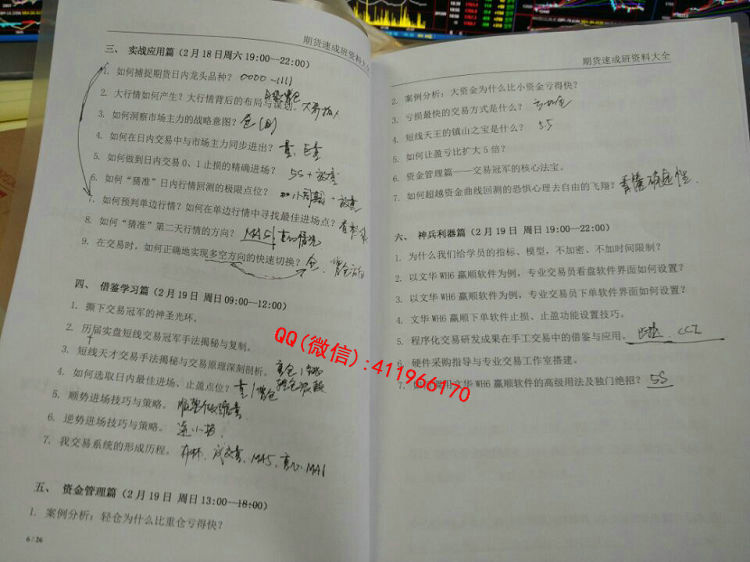 期货速成班资料大全
三、 实战应用篇（2 月 18 日周六 19:00—22:00）
1. 如何捕捉期货日内龙头品种？ 0000-1111
2. 大行情如何产生？大行情背后的布局与谋划。
3. 如何洞察市场主力的战略意图？
4. 如何在日内交易中与市场主力同步进出？
5. 如何做到日内交易 0、1 止损的精确进场？ 5S+
6. 如何“猜准”日内行情回测的极限点位？
7. 如何预判单边行情？如何在单边行情中寻找最佳进场点？
8. 如何“猜准”第二天行情的方向？ MA5
9. 在交易时，如何正确地实现多空方向的快速切换？
四、 借鉴学习篇（2 月 19 日 周日 09:00—12:00）
1. 撕下交易冠军的神圣光环。
2. 历届实盘短线交易冠军手法揭秘与复制。
3. 短线天才交易手法揭秘与交易原理深刻剖析。
4. 如何选取日内最佳进场、止盈点位？
5. 顺势进场技巧与策略。
6. 逆势进场技巧与策略。
7. 我交易系统的形成历程。 布林、成交量、MA5、
五、 资金管理篇（2 月 19 日 周日 13:00—18:00）
1. 案例分析：轻仓为什么比重仓亏得快？
6 / 26
期货速成班资料大全
2. 案例分析：大资金为什么比小资金亏得快？
3. 亏损最快的交易方式是什么？
4. 短线天王的镇山之宝是什么？ 5S
5. 如何让盈亏比扩大 5 倍？
6. 资金管理篇——交易冠军的核心法宝。
7. 如何超越资金曲线回测的恐惧心理去自由的飞翔？
六、 神兵利器篇（2 月 19 日 周日 19:00—22:00）
1. 为什么我们给学员的指标、模型，不加密、不加时间限制？
2. 以文华 WH6 赢顺软件为例，专业交易员看盘软件界面如何设置？
3. 以文华 WH6 赢顺软件为例，专业交易员下单软件界面如何设置？
4. 文华 WH6 赢顺下单软件止损、止盈功能设置技巧。
5. 程序化交易研发成果在手工交易中的借鉴与应用。 CCI
6. 硬件采购指导与专业交易工作室搭建。
7. 用文华 WH6 赢顺软件的高级用法及独门绝招？ 5S
QQ(微信):411966170